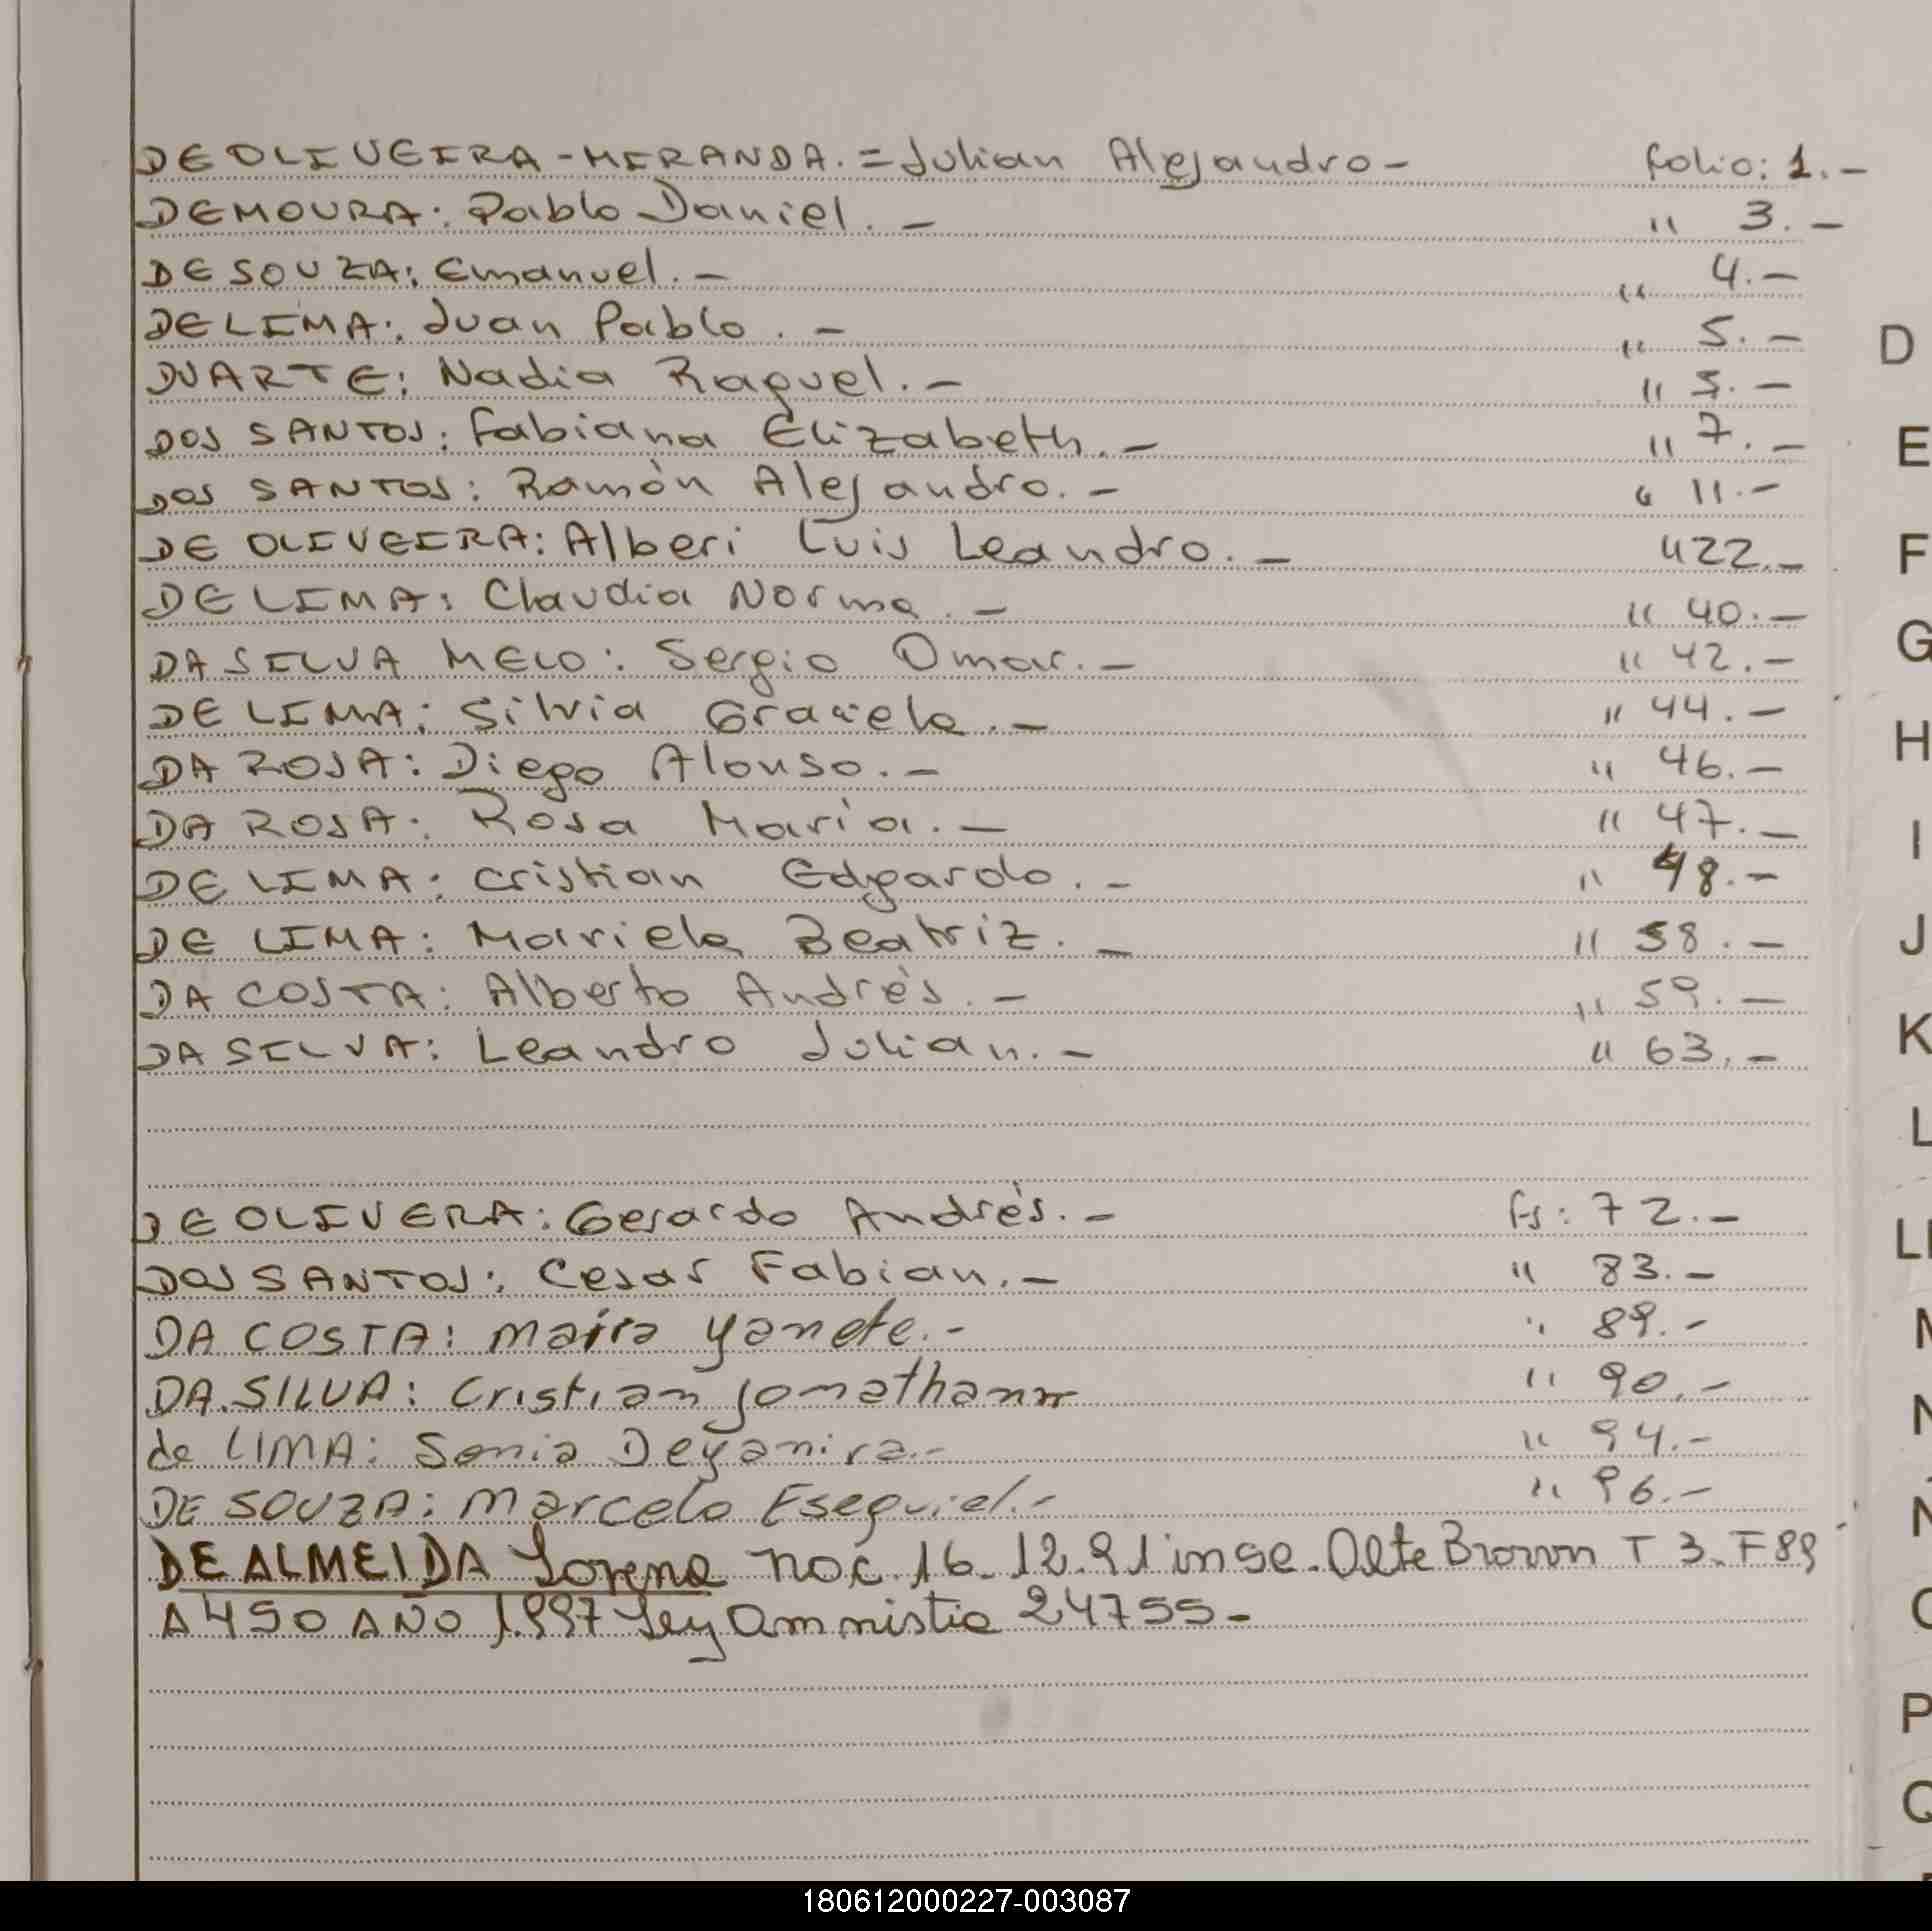 DE OLIVEIRA-MIRANDA. = Julian Alejandro- folio: 1.-
DEMOURA: Pablo Daniel.- " 3.-
DE SOUZA: Emanuel.- " 4.-
DE LIMA: Juan Pablo.- " 5.-
DUARTE: Nadia Raquel.- " 5.-
DOS SANTOS: Fabiana Elizabeth.- " 7.-
DOS SANTOS: Ramón Alejandro.- " 11.-
DE OLIVEIRA: Alberi Luis Leandro.- " 22.-
DE LIMA: Claudia Norma.- " 40.-
DA SILVA MELO: Sergio Omar.- " 42.-
DE LIMA: Silvia Graciela.- " 44.-
DA ROSA: Diego Alonso.- " 46.-
DA ROSA: Rosa María.- " 47.-
DE LIMA: Cristian Edgardo.- " 48.-
DE LIMA: Mariela Beatriz.- " 58.-
DA COSTA: Alberto Andrés.- " 59.-
DA SILVA: Leandro Julian.- " 63.-
DE OLIVERA: Gerardo Andrés.- fs: 72.-
DOS SANTOS: Cesar Fabian.- " 83.-
DA COSTA: Maira Yanete.- " 89.-
DA SILVA: Cristian Jonathann " 90.-
de LIMA: Sonia Deyanira.- " 94.-
DE SOUZA: Marcelo Esequiel.- " 96.-
DE ALMEIDA Lorena nac. 16.12.91 inse. Alte Brown T 3. F 89
A 450 AÑO 1.997 Ley Amnistia 24755-
D
E
F
G
H
I
J
K
L
LL
M
N
Ñ
O
P
Q
180612000227-003087